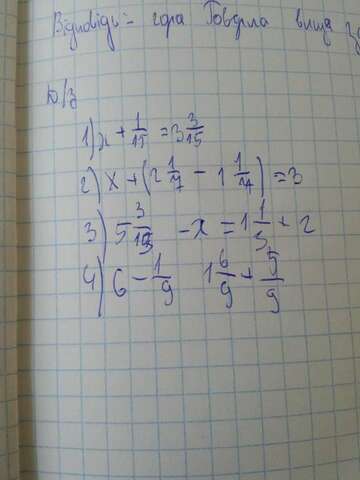 Відповідь:- гора Говерла вища
Ю/з
1) x + 1/15 = 3 3/15
2) x + (2 1/7 - 1 1/4) = 3
3) 5 3/13 - x = 1 1/3 + 2
4) 6 - 1/9 1 6/9 + 5/9